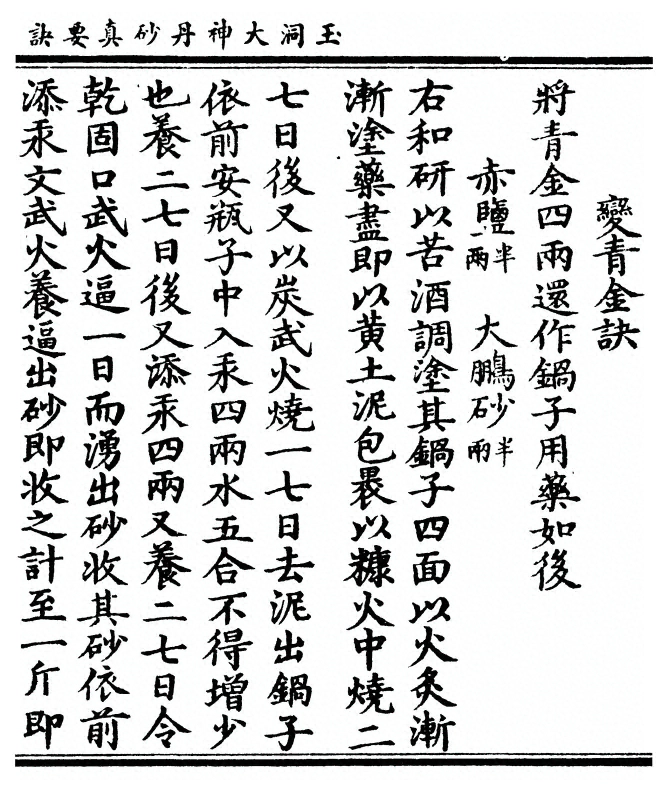 玉洞大神丹砂真要訣
變青金訣
將青金四兩還作鍋子用藥如後
赤鹽一兩半 大鵬砂半兩
右和研以苦酒調塗其鍋子四面以火炙漸
漸塗藥盡即以黄土泥包褁以糠火中燒二
七日後又以炭武火燒一七日去泥出鍋子
依前安瓶子中入汞四兩水五合不得增少
也養二七日後又添汞四兩又養二七日令
乾固口武火逼一日而湧出砂收其砂依前
添汞文武火養逼出砂即收之計至一斤即